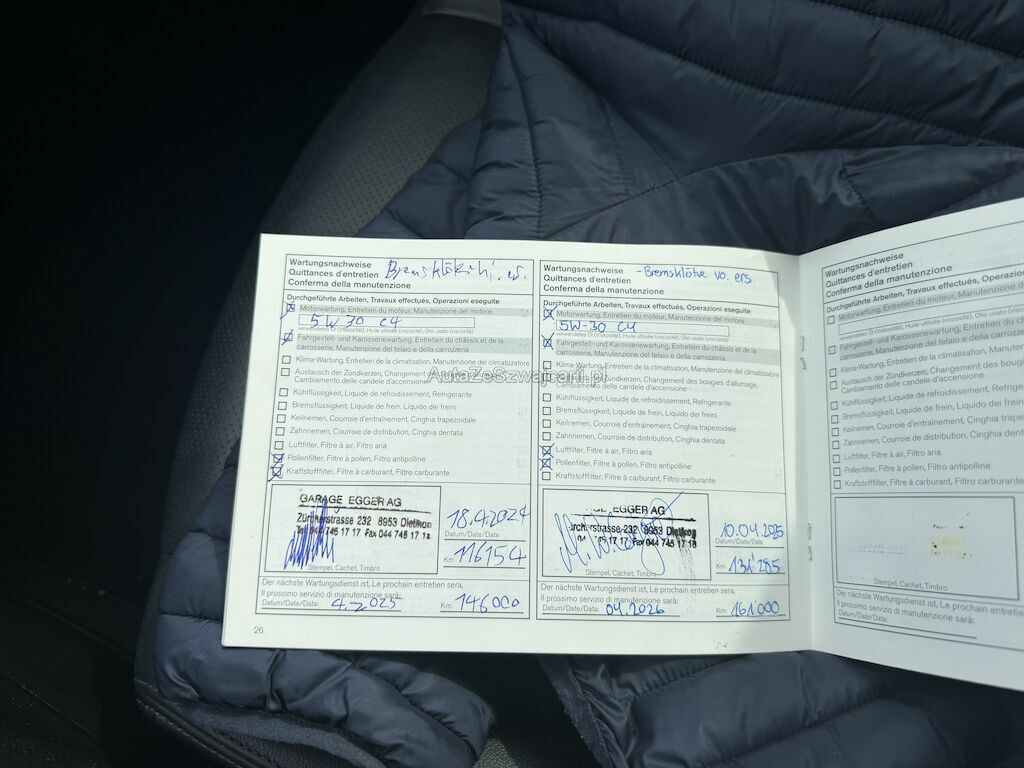 Wartungsnachweise
Quittances d'entretien
Conferma della manutenzione
Durchgeführte Arbeiten, Travaux effectués, Operazioni eseguite
Motorwartung, Entretien du moteur, Manutenzione del motore
5W 30 C4
verwendetes Öl (Viskosität), Huile utilisée (viscosité), Olio usato (viscosità)
Fahrgestell- und Karosseriewartung, Entretien du châssis et de la
carrosserie, Manutenzione del telaio e della carrozzeria
Klima-Wartung, Entretien de la climatisation, Manutenzione del climatizzatore
Austausch der Zündkerzen, Changement des bougies d'allumage,
Cambiamento delle candele d'accensione
Kühlflüssigkeit, Liquide de refroidissement, Refrigerante
Bremsflüssigkeit, Liquide de frein, Liquido dei freini
Keilriemen, Courroie d'entraînement, Cinghia trapezoidale
Zahnriemen, Courroie de distribution, Cinghia dentata
Luftfilter, Filtre à air, Filtro aria
Pollenfilter, Filtre à pollen, Filtro antipolline
Kraftstofffilter, Filtre à carburant, Filtro carburante
GARAGE EGGER AG
Zürcherstrasse 232 8953 Dietikon
745 17 17 Fax 044 745 17 18
Stempel, Cachet, Timbro
18.4.2024
Datum/Date/Data
Km 116154
Der nächste Wartungsdienst ist, Le prochain entretien sera,
Il prossimo servizio di manutenzione sarà:
Datum/Date/Data: 4.2025 Km: 146000
26
Wartungsnachweise - Bremsklötze vo. ers.
Quittances d'entretien
Conferma della manutenzione
Durchgeführte Arbeiten, Travaux effectués, Operazioni eseguite
Motorwartung, Entretien du moteur, Manutenzione del motore
5W-30 C4
verwendetes Öl (Viskosität), Huile utilisée (viscosité), Olio usato (viscosità)
Fahrgestell- und Karosseriewartung, Entretien du châssis et de la
carrosserie, Manutenzione del telaio e della carrozzeria
Klima-Wartung, Entretien de la climatisation, Manutenzione del climatizzatore
Zündkerzen, Changement des bougies d'allumage,
Cambiamento delle candele d'accensione
Kühlflüssigkeit, Liquide de refroidissement, Refrigerante
Bremsflüssigkeit, Liquide de frein, Liquido dei freini
Keilriemen, Courroie d'entraînement, Cinghia trapezoidale
Zahnriemen, Courroie de distribution, Cinghia dentata
Luftfilter, Filtre à air, Filtro aria
Pollenfilter, Filtre à pollen, Filtro antipolline
Kraftstofffilter, Filtre à carburant, Filtro carburante
EGGER AG
232 8953 Dietikon
17 17 Fax 044 745 17 18
Stempel, Cachet, Timbro
10.04.2025
Datum/Date/Data
Km 131'285
Der nächste Wartungsdienst ist, Le prochain entretien sera,
Il prossimo servizio di manutenzione sarà:
Datum/Date/Data: 04.2026 Km: 161000
Wartungsnachweise
Quittances d'entretien
Conferma della manutenzione
Durchgeführte Arbeiten, Travaux effectués, Operazioni
Motorwartung, Entretien du moteur, Manutenzione del
verwendetes Öl (Viskosität), Huile utilisée (viscosité), Olio usato
Fahrgestell- und Karosseriewartung, Entretien du
carrosserie, Manutenzione del telaio e della carrozzeria
Klima-Wartung, Entretien de la climatisation,
Austausch der Zündkerzen, Changement des
Cambiamento delle candele d'accensione
Kühlflüssigkeit, Liquide de refroidissement,
Bremsflüssigkeit, Liquide de frein, Liquido dei
Keilriemen, Courroie d'entraînement, Cinghia
Zahnriemen, Courroie de distribution, Cinghia
Luftfilter, Filtre à air, Filtro aria
Pollenfilter, Filtre à pollen, Filtro antipolline
Kraftstofffilter, Filtre à carburant, Filtro
Stempel, Cachet, Timbro
Der nächste Wartungsdienst ist, Le prochain entretien
Il prossimo servizio di manutenzione sarà:
Datum/Date/Data:
AutaZeSzwajcarii.pl